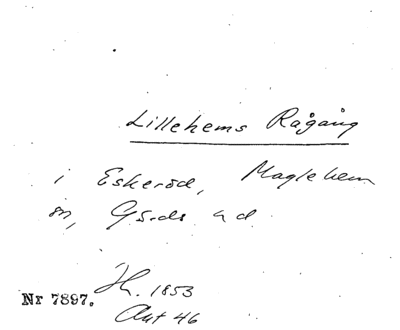 Lillehems Rågång
i Eskeröd, Maglehem
sn, Gärds hd
Nr 7897.
H. 1853
Akt 46